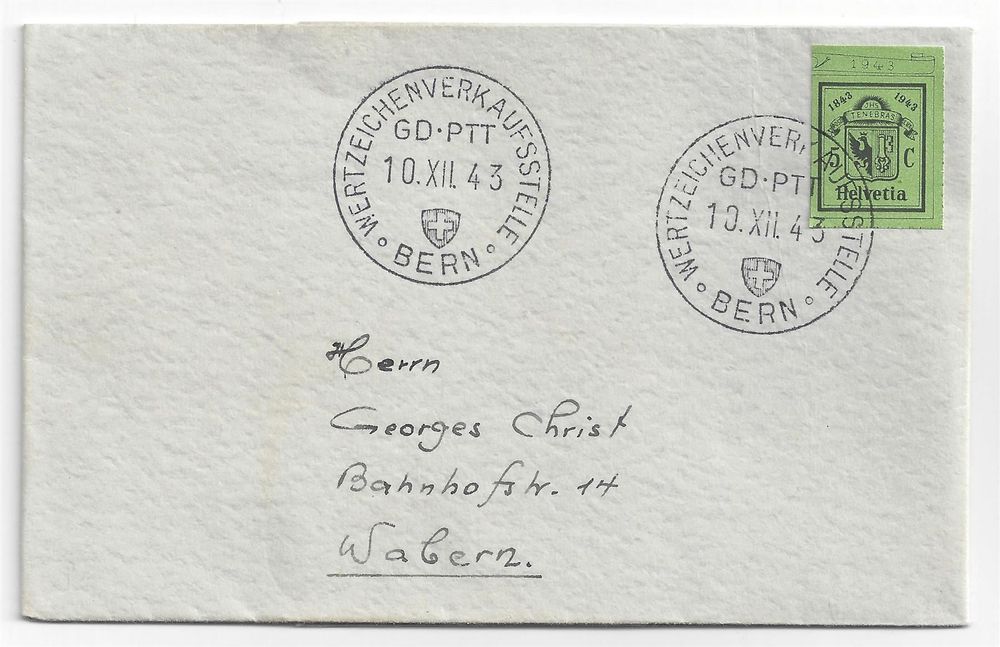 WERTZEICHENVERKAUFSSTELLE
GD·PTT
10.XII.43
BERN
WERTZEICHENVERKAUFSSTELLE
GD·PTT
10.XII.43
BERN
1943
1843 1943
JHS
TENEBRAS
5 C
Helvetia
Herrn
Georges Christ
Bahnhofstr. 14
Wabern.